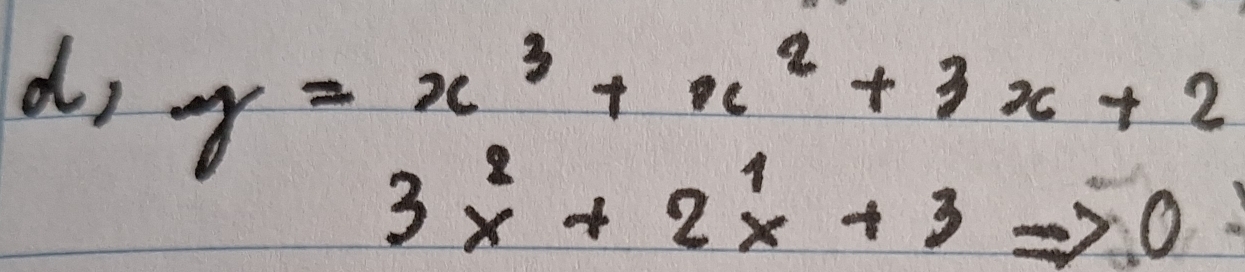 d, y = x³ + x² + 3x + 2
3x² + 2x¹ + 3 => 0